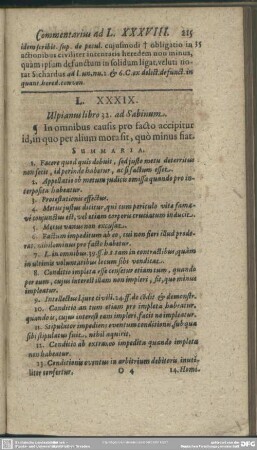 Commentarius ad L. XXXVIII. 215
idem scribit. sup. de pecul. cujusmodi † obligatio in 15
actionibus civiliter intentatis heredem non minus,
quàm ipsum defunctum in solidum ligat, veluti no-
tat Sichardus ad l. un. nu. 2 & 6. C. ex delict. defunct. in
quant. hered. conven.
L. XXXIX.
Ulpianus libro 32. ad Sabinum.
¶ In omnibus causis pro facto accipitur
id, in quo per alium mora fit, quo minus fiat.
SUMMARIA.
1. Facere quod quis debuit, sed justo metu deterritus
non facit, id perinde habetur, ac si factum esset.
2. Appellatio ob metum judicis omissa quando pro in-
terposita habeatur.
3. Protestationis effectus.
4. Metus justus dicitur, qui cum periculo vitæ famæ-
vè conjunctus est, vel etiam corporis cruciatum inducit.
5. Metus vanus non excusat.
6. Factum impeditum ab eo, cui non fieri illud prode-
rat, nihilominus pro facto habetur.
7. L. in omnibus. 39. ff. b. t. tam in contractibus, quàm
in ultimis voluntatibus locum sibi vendicat.
8. Conditio impleta esse censetur etiam tum, quando
per eum, cujus interest illam non impleri, fit, quo minus
impleatur.
9. Intellectus l. jure civili. 24. ff. de cōdit & demonstr.
10. Conditio an tum etiam pro impleta habeatur,
quando is, cujus interest eam impleri, facit ne impleatur.
11. Stipulator impediens eventum conditionis, sub qua
sibi stipulatus fuit, nihil aquirit.
12. Conditio ab extraneo impedita quando impleta
non habeatur.
13. Conditionis eventus in arbitrium debitoris inuti-
liter confertur.
O 4 14. Items